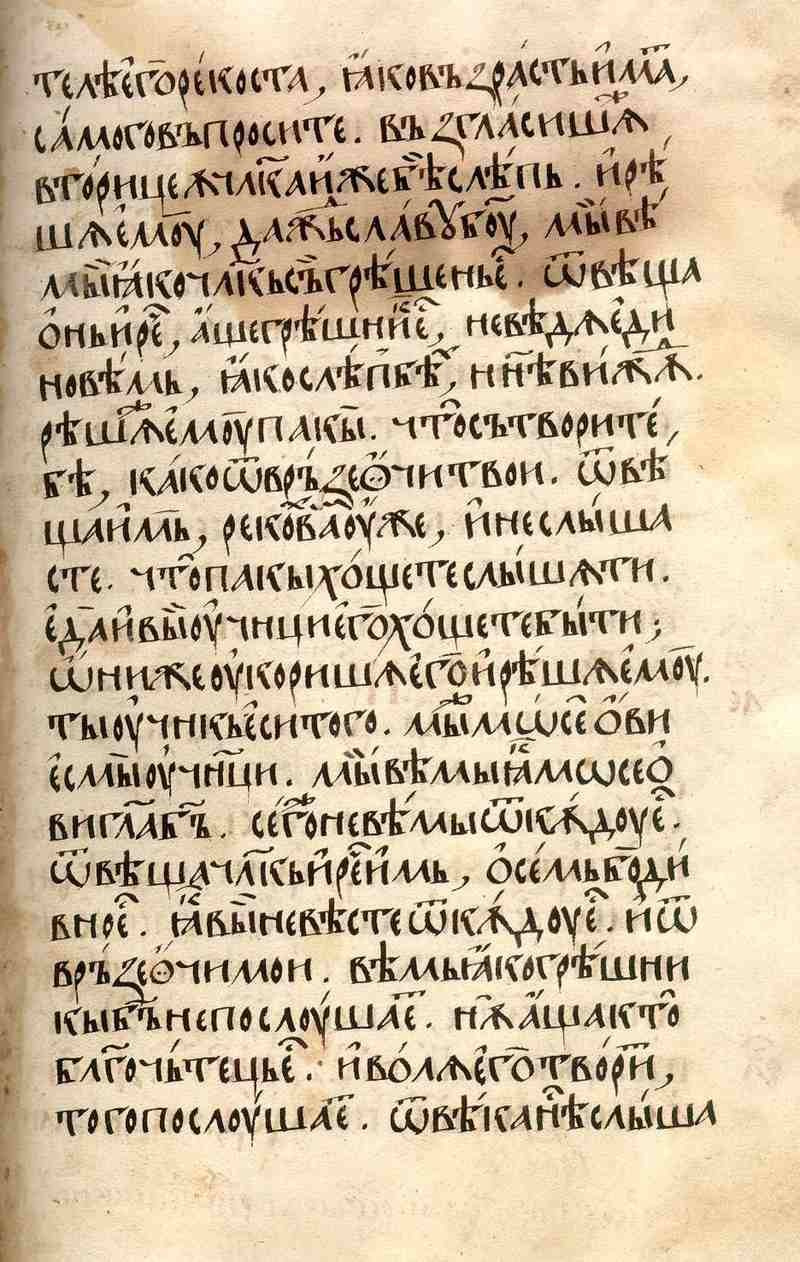 телѣ є҆го̑ реко́ста, ꙗ҆ко въꙁра́сть и҆мⷶа,
самого въпроси́те. въꙁгла́сишѧ
втори́цеѫ чл҃ка и҆же бѣ̀ слѣ́пь. и҆ рѣ́
шѧ є҆моу̑, даждь сла́вꙋ боу҃, мы̀ вѣ́
мы̀ ꙗ҆ко чл҃кь съ грѣ́шень є҆ⷭ. ѿвѣща
о҆нь и҆ рѐⷱ, а҆ще грѣ́шникь є҆ⷭ, не вѣдѧ є҆ди
но вѣ́мь, ꙗ҆ко слѣ́пь бѣ̀хь, н҃нѣ ви́жѫ.
рѣ́шѧ же є҆моу̑ пакы̀. что̀ сътвори́ те
бѣ̀, ка́ко ѿврь́ꙁе ѻ҆́чи твои. ѿвѣ́
ща и҆мь, реко́хь ва̀ⷨ оу҆же, и҆ не слы́ша
сте. что̀ пакы хо́щете слы́шѧти.
є҆да̀ и҆ вы̀ оу҆ченици є҆го̀ хо́щете бы́ти;
ѡ҆ни же оу҆кори́шѧ є҆го̀ и҆ рѣ́шѧ є҆моу̑.
ты оу҆ченикь є҆си того. мы же мѡѷсе́ѻви
є҆смы̀ оу҆ченици. мы̀ вѣ́мы ꙗ҆ко мѡѷсео҆
ви гл҃а бг҃ъ. сего же не вѣ́мы ѿкѫ́доу є҆ⷭ.
ѿвѣща чл҃кь и҆ рѐⷱ и҆мь, о҆ се́мь бо ди́
вно є҆ⷭ. ꙗ҆ко вы̀ не вѣ́сте ѿкѫ́доу є҆ⷭ. и҆ ѿ
врь́ꙁе ѻ҆́чи мои. вѣ́мь ꙗ҆ко грѣ́шни
кы б҃ъ не послоу́шаеⷮ. нѫ а҆ща кто̀
бл҃гочьте́ць є҆ⷭ. и҆ во́лѧ є҆го̀ твори́ⷮ,
того послоу́шаеⷮ. ѿ вѣ́ка нѣ̀ слы́ша